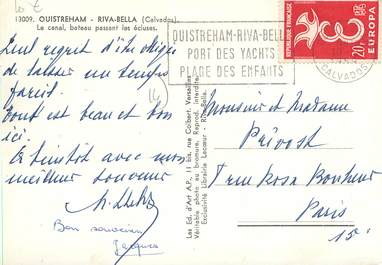 13009. OUISTREHAM - RIVA-BELLA (Calvados).
Le canal, bateau passant les écluses.
Seul regret d'être obligé
de laisser un temps
pareil.
Tout est beau et bon
ici.
A bientôt avec mon
meilleur souvenir
Bon souvenir
Jacques
14
Les Ed. d'Art A.P., 11 bis, rue Colbert, Versailles
Véritable photo au bromure, Reprod. interdite
Exclusivité Librairie Lecœur Riva-Bella
OUISTREHAM-RIVA-BELLA
PORT DES YACHTS
PLAGE DES ENFANTS
CALVADOS
REPUBLIQUE FRANÇAISE
POSTES
20F
EUROPA
Monsieur et Madame
Prévost
7 rue Rosa Bonheur
Paris
15e